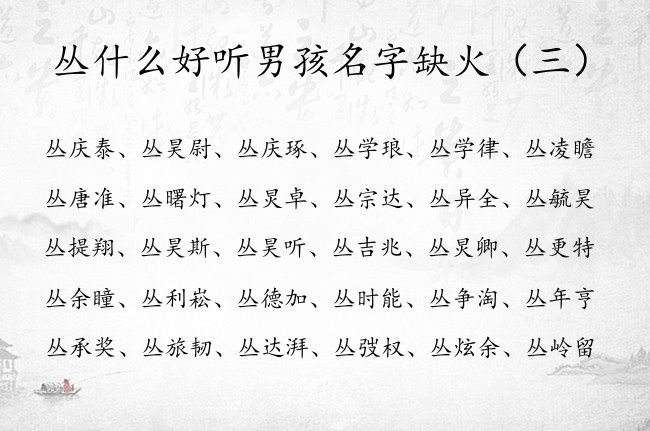 丛什么好听男孩名字缺火（三）
丛庆泰、丛昊尉、丛庆琢、丛学琅、丛学律、丛凌瞻
丛唐准、丛曙灯、丛炅卓、丛宗达、丛异全、丛毓昊
丛提翔、丛昊斯、丛昊听、丛吉兆、丛炅卿、丛更特
丛余瞳、丛利崧、丛德加、丛时能、丛争淘、丛年亨
丛承奖、丛旅韧、丛达湃、丛弢权、丛炫余、丛岭留